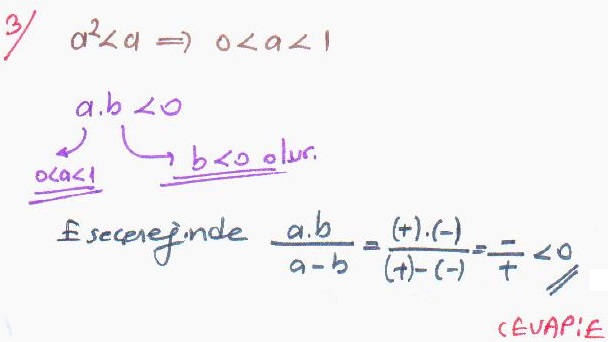 3/ a²<a ⇒ 0<a<1
a.b<0
0<a<1 b<0 olur.
E seçeneğinde a.b/a-b = (+).(-)/(+)-(-) = -/+ <0
CEVAP:E